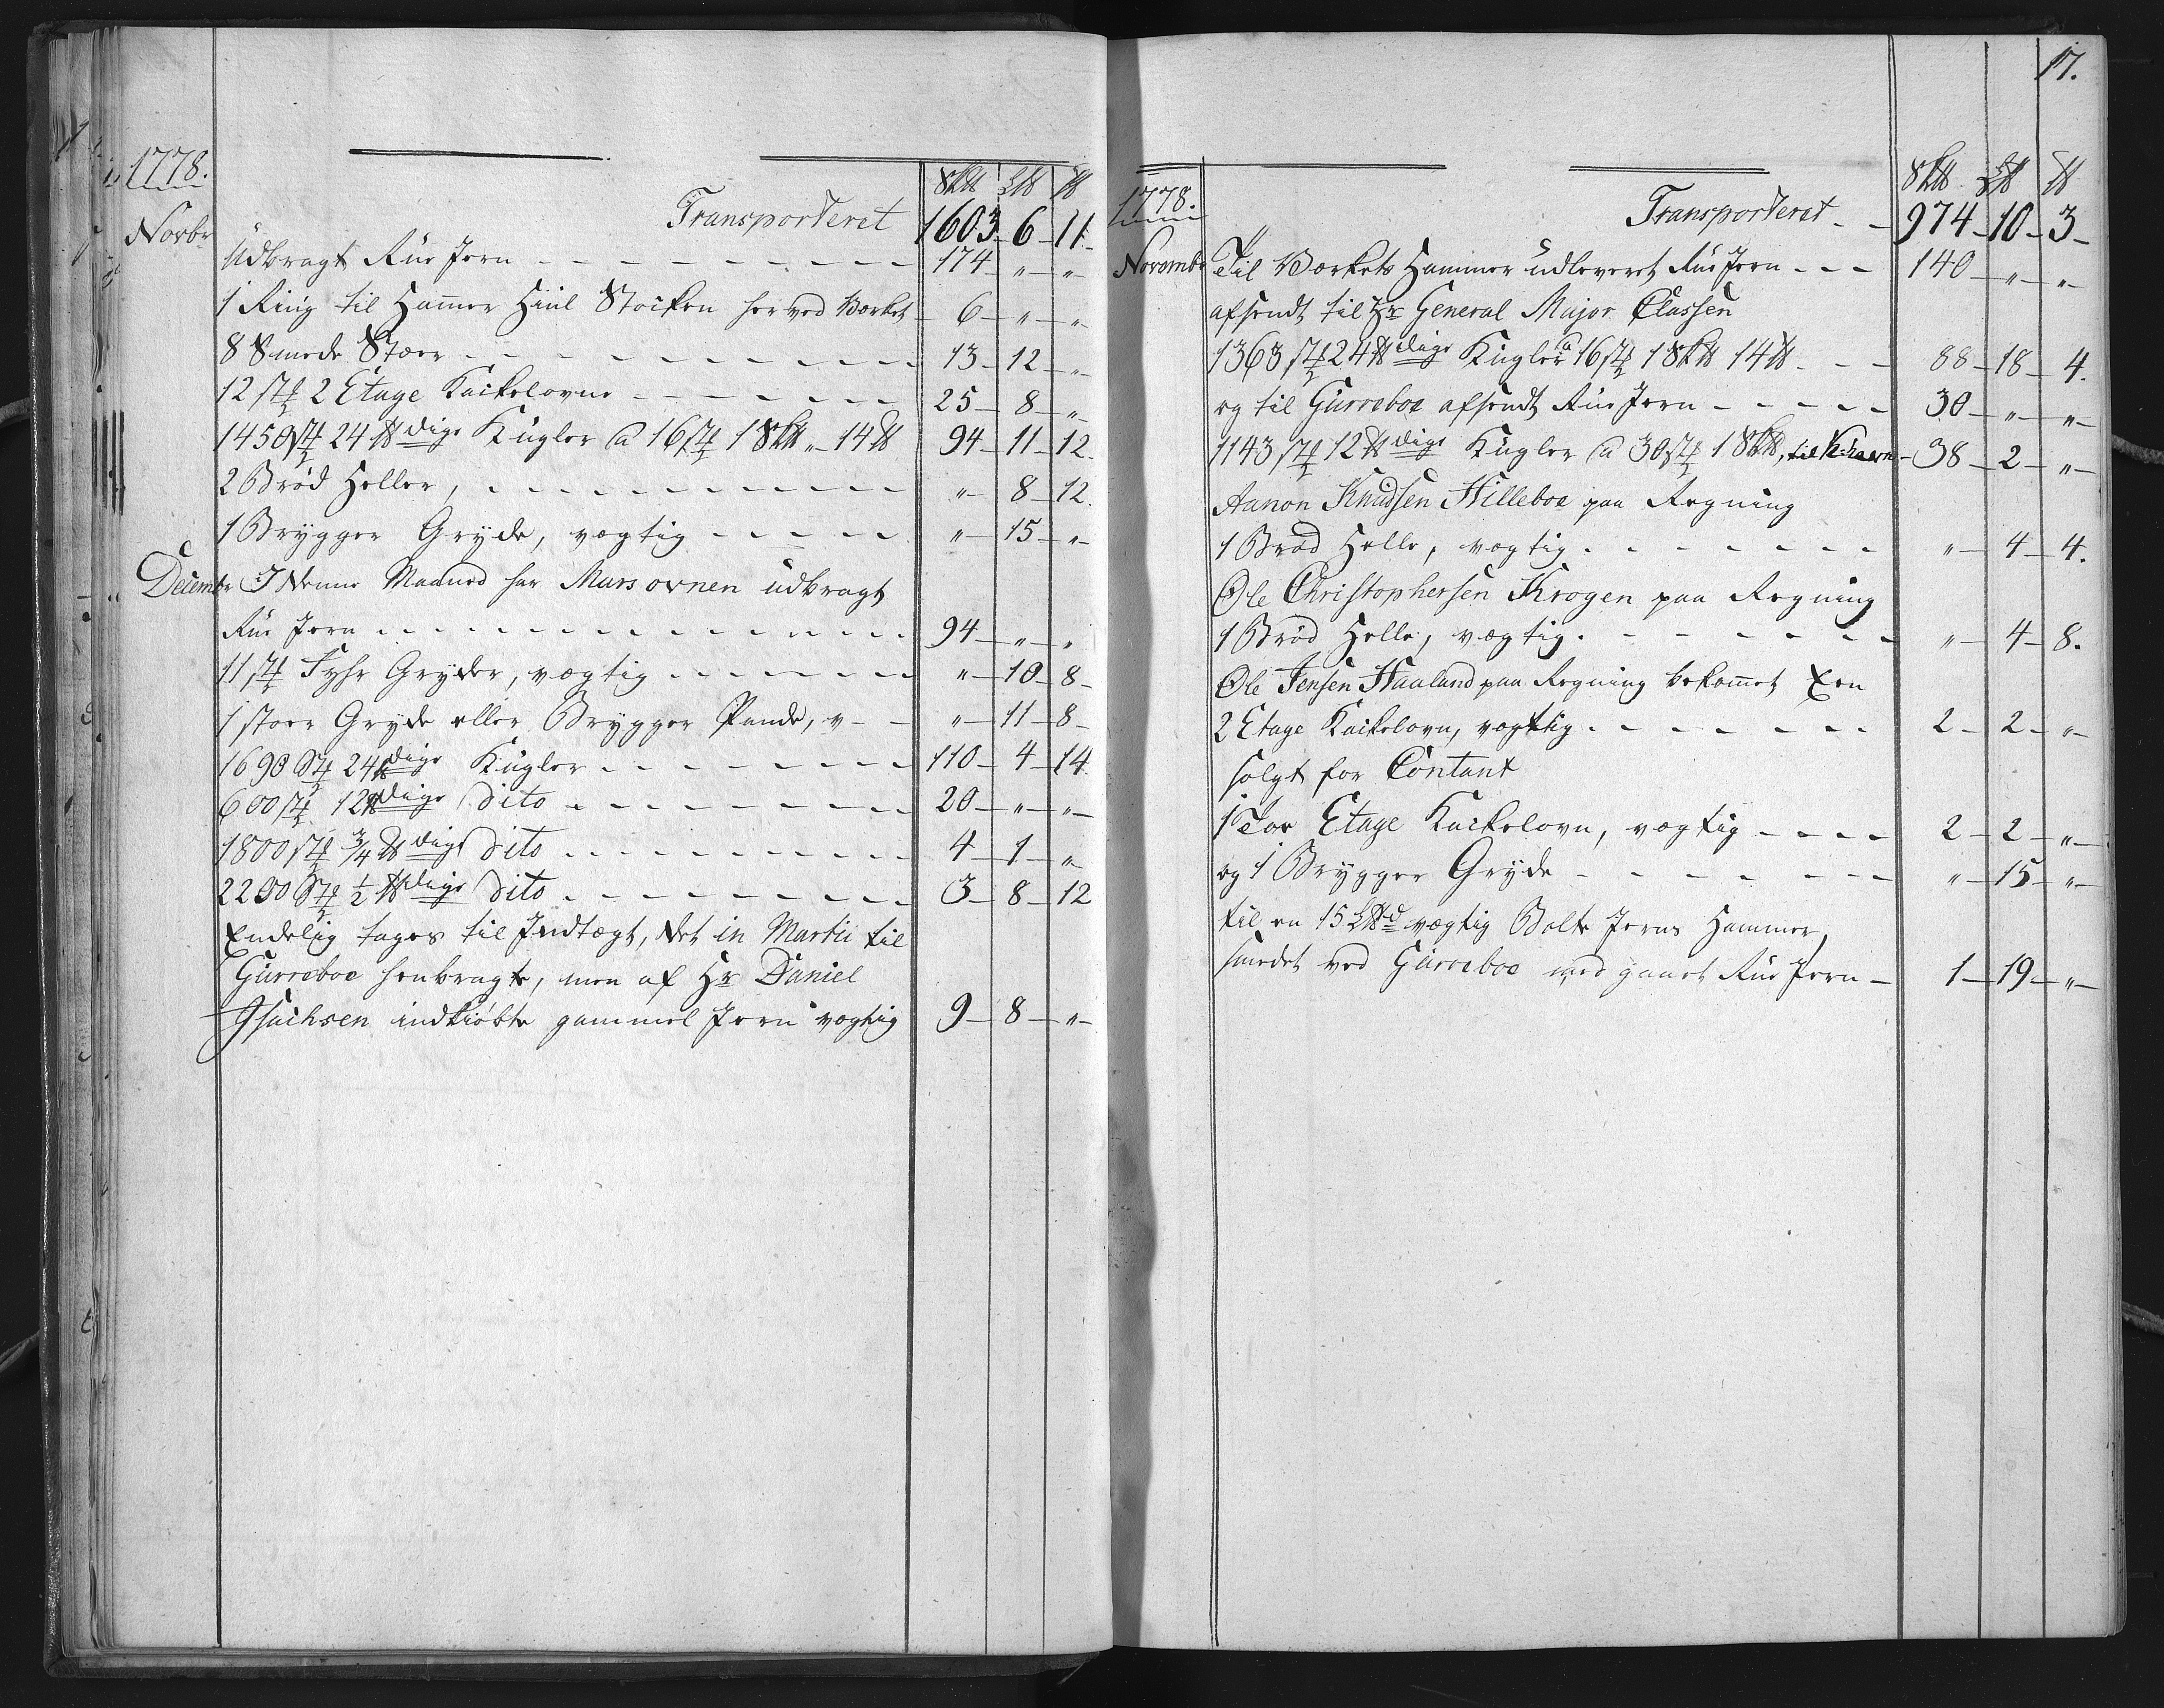 1778.
Sk℔ L℔ ℔
Novbr
Transporteret 1603 6 11
Udbragt Rue Jern 174 " "
1 Ring til Ham̅er Hiul Stocken her ved Værket 6 " "
8 Smede Stæer 13 12 "
12 st 2 Etage Kackelovne 25 8 "
1450 st 24 ℔dige Kugler a 16 st 1 Sk℔ " 14 ℔ 94 11 12.
2 Brød Heller, " 8 12.
1 Brygger Gryde, vægtig " 15 "
Decembr I denne Maaned har Mars ovnen udbragt
Rue Jern 94 " "
11 st Fyhr Gryder, vægtig " 10 8
1 stoer Gryde eller Brygger Pande, v " 11 8
1690 St 24 ℔dige Kugler 110 4 14.
600 st 12 ℔dige dito 20 " "
1800 st 3/4 ℔dige dito 4 1 "
2200 St 1/2 ℔dige dito 3 8 12
Endelig tages til Indtægt, det in Martii til
Gurreboe henbragte, men af Hr Daniel
Isachsen indkiøbte gammel Jern vægtig 9 8 "
17.
1778.
Sk℔ L℔ ℔
Transporteret 974 10 3
Novembr Til Værkets Hammer udleveret Rue Jern 140 " "
afsendt til Hr General Major Classen
1363 st 24 ℔dige Kugler a 16 st 1 Sk℔ 14 ℔ 88 18 4.
og til Gurreboe afsendt Rue Jern 30 " "
1143 st 12 ℔dige Kugler a 30 st 1 Sk℔, til K:havn 38 2 "
Aanon Knudsen Hilleboe paa Regning
1 Brød Helle, vægtig " 4 4.
Ole Christophersen Krogen paa Regning
1 Brød Helle, vægtig " 4 8.
Ole Jensen Haaland paa Regning bekom̅et Een
2 Etage Kackelovn, vægtig 2 2 "
solgt for Contant
1 Toe Etage Kackelovn, vægtig 2 2 "
og 1 Brygger Gryde " 15 "
til en 15 L℔d vægtig Bolte Jerns Hammer,
smedet ved Gurreboe medgaaet Rue Jern 1 19 "